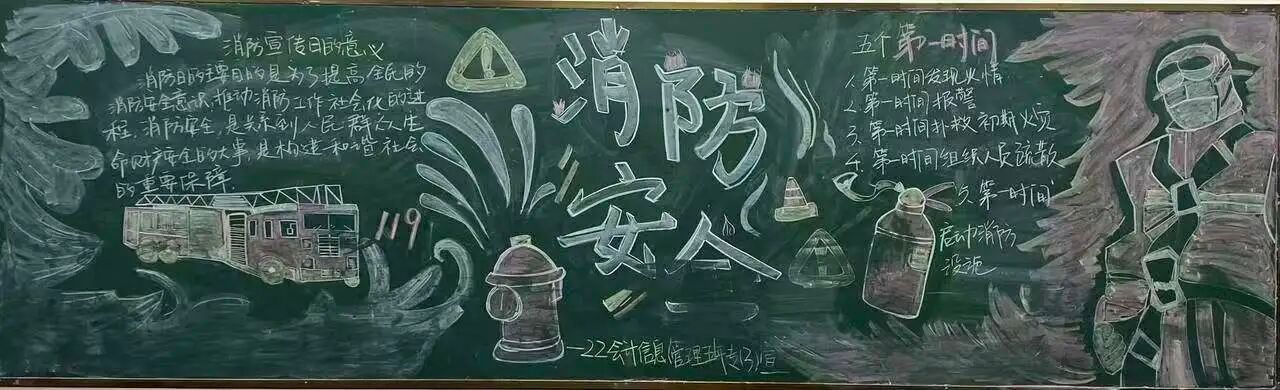 消防宣传日的意义
消防日的主要目的是为了提高全民的
消防安全意识,推动消防工作社会化的进
程,消防安全,是关系到人民群众生
命财产安全的大事,是构建和谐社会
的重要保障.
119
消防
安全
五个第一时间
1.第一时间发现火情
2.第一时间报警
3.第一时间扑救初期火灾
4.第一时间组织人员疏散
5.第一时间
启动消防
设施.
22会计信息管理班专(3)宣